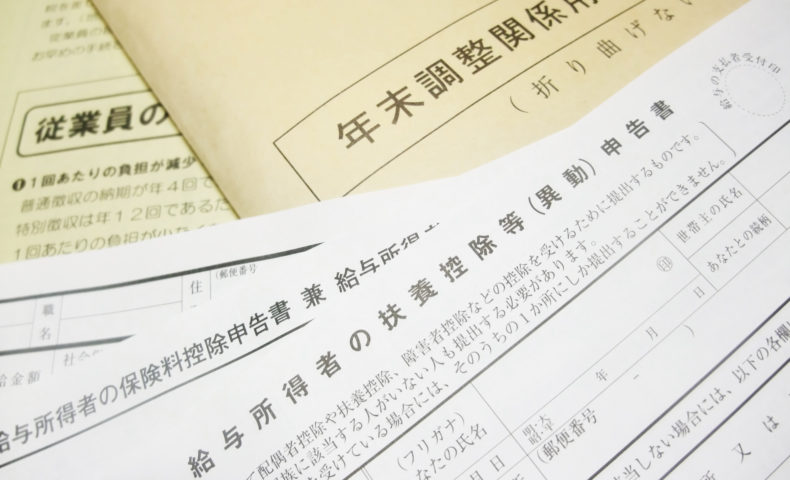 お早めの手続
従業員の
❶1回あたりの負担が減少
普通徴収の納期が年4回で
特別徴収は年12回であるた
1回あたりの負担が少なく
年末調整関係
(折り曲げな
給与の支払者受付印
住
(郵便番号
職
名
給与所得者の保険料控除申告書 兼 給与所得
給金額
社会
給与所得者の扶養控除等(異動)申告書
配偶者控除や扶養控除、障害者控除などの控除を受けるために提出するものです。
族に該当する人がいない人も提出する必要があります。
を受けている場合には、そのうちの1か所にしか提出することができません。
(フリガナ)
なたの氏名
印
世帯主の氏名
あなたとの続柄
明・大
昭・平
年 月 日
(郵便番号 - )
月 日
当しない場合には、以下の各欄
所 又 は